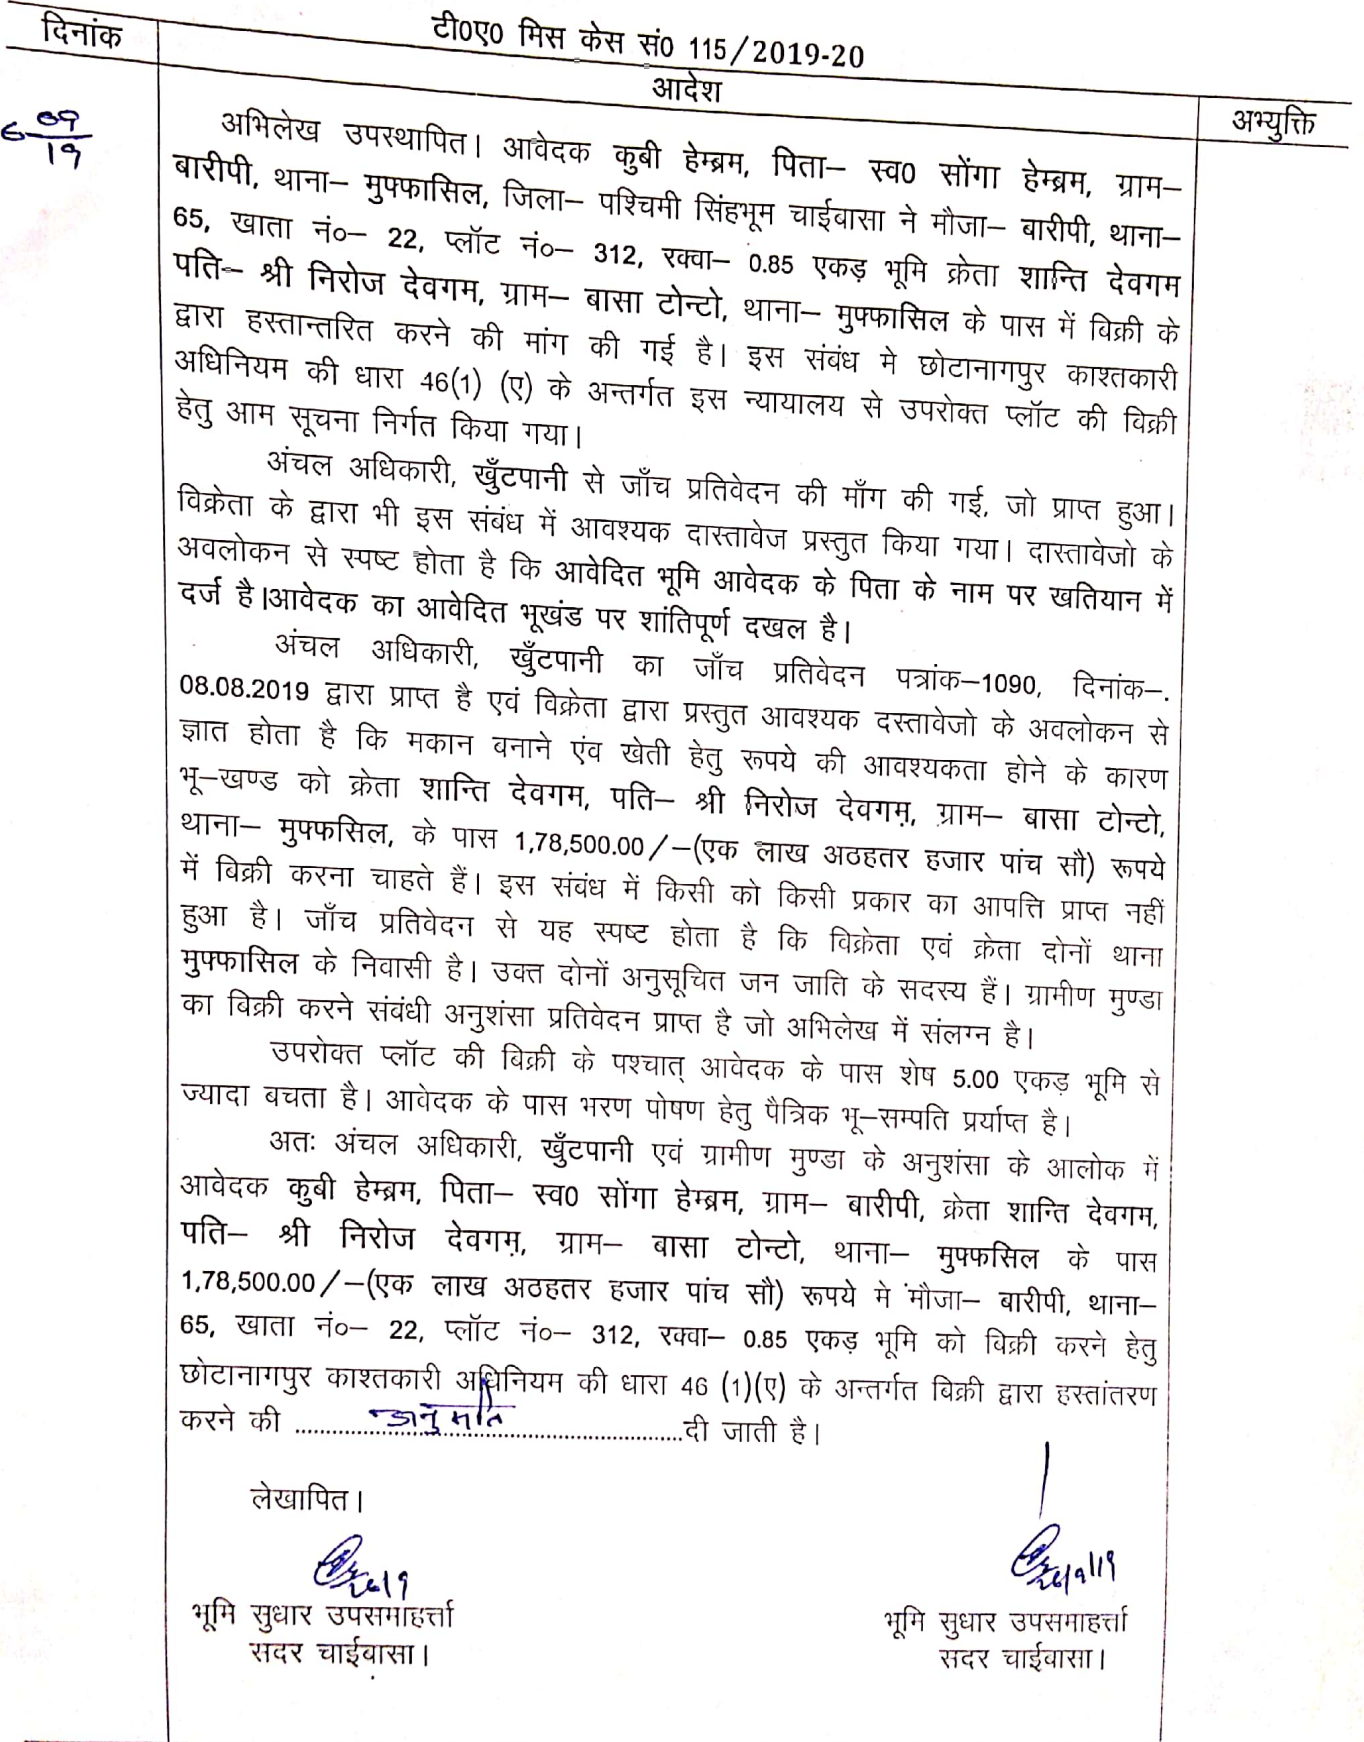 दिनांक
टी0ए0 मिस केस सं0 115/2019-20
आदेश
अभ्युक्ति
6 09/19
अभिलेख उपस्थापित। आवेदक कुबी हेम्ब्रम, पिता– स्व0 सोंगा हेम्ब्रम, ग्राम–
बारीपी, थाना– मुफ्फासिल, जिला– पश्चिमी सिंहभूम चाईबासा ने मौजा– बारीपी, थाना–
65, खाता नं०– 22, प्लॉट नं०– 312, रक्वा– 0.85 एकड़ भूमि क्रेता शान्ति देवगम
पति– श्री निरोज देवगम, ग्राम– बासा टोन्टो, थाना– मुफ्फासिल के पास में बिक्री के
द्वारा हस्तान्तरित करने की मांग की गई है। इस संबंध मे छोटानागपुर काश्तकारी
अधिनियम की धारा 46(1) (ए) के अन्तर्गत इस न्यायालय से उपरोक्त प्लॉट की विक्री
हेतु आम सूचना निर्गत किया गया।
अंचल अधिकारी, खुँटपानी से जाँच प्रतिवेदन की माँग की गई, जो प्राप्त हुआ।
विक्रेता के द्वारा भी इस संबंध में आवश्यक दास्तावेज प्रस्तुत किया गया। दास्तावेजो के
अवलोकन से स्पष्ट होता है कि आवेदित भूमि आवेदक के पिता के नाम पर खतियान में
दर्ज है।आवेदक का आवेदित भूखंड पर शांतिपूर्ण दखल है।
अंचल अधिकारी, खुँटपानी का जाँच प्रतिवेदन पत्रांक–1090, दिनांक–.
08.08.2019 द्वारा प्राप्त है एवं विक्रेता द्वारा प्रस्तुत आवश्यक दस्तावेजो के अवलोकन से
ज्ञात होता है कि मकान बनाने एंव खेती हेतु रूपये की आवश्यकता होने के कारण
भू–खण्ड को क्रेता शान्ति देवगम, पति– श्री निरोज देवगम, ग्राम– बासा टोन्टो,
थाना– मुफ्फसिल, के पास 1,78,500.00/–(एक लाख अठहतर हजार पांच सौ) रूपये
में बिक्री करना चाहते हैं। इस संबंध में किसी को किसी प्रकार का आपत्ति प्राप्त नहीं
हुआ है। जाँच प्रतिवेदन से यह स्पष्ट होता है कि विक्रेता एवं क्रेता दोनों थाना
मुफ्फासिल के निवासी है। उक्त दोनों अनुसूचित जन जाति के सदस्य हैं। ग्रामीण मुण्डा
का बिक्री करने संबंधी अनुशंसा प्रतिवेदन प्राप्त है जो अभिलेख में संलग्न है।
उपरोक्त प्लॉट की बिक्री के पश्चात् आवेदक के पास शेष 5.00 एकड़ भूमि से
ज्यादा बचता है। आवेदक के पास भरण पोषण हेतु पैत्रिक भू–सम्पति प्रर्याप्त है।
अतः अंचल अधिकारी, खुँटपानी एवं ग्रामीण मुण्डा के अनुशंसा के आलोक में
आवेदक कुबी हेम्ब्रम, पिता– स्व0 सोंगा हेम्ब्रम, ग्राम– बारीपी, क्रेता शान्ति देवगम,
पति– श्री निरोज देवगम, ग्राम– बासा टोन्टो, थाना– मुफ्फसिल के पास
1,78,500.00/–(एक लाख अठहतर हजार पांच सौ) रूपये मे मौजा– बारीपी, थाना–
65, खाता नं०– 22, प्लॉट नं०– 312, रक्वा– 0.85 एकड़ भूमि को बिक्री करने हेतु
छोटानागपुर काश्तकारी अधिनियम की धारा 46 (1)(ए) के अन्तर्गत बिक्री द्वारा हस्तांतरण
करने की ........अनुमति........दी जाती है।
लेखापित।
भूमि सुधार उपसमाहर्त्ता
सदर चाईवासा।
भूमि सुधार उपसमाहर्त्ता
सदर चाईवासा।